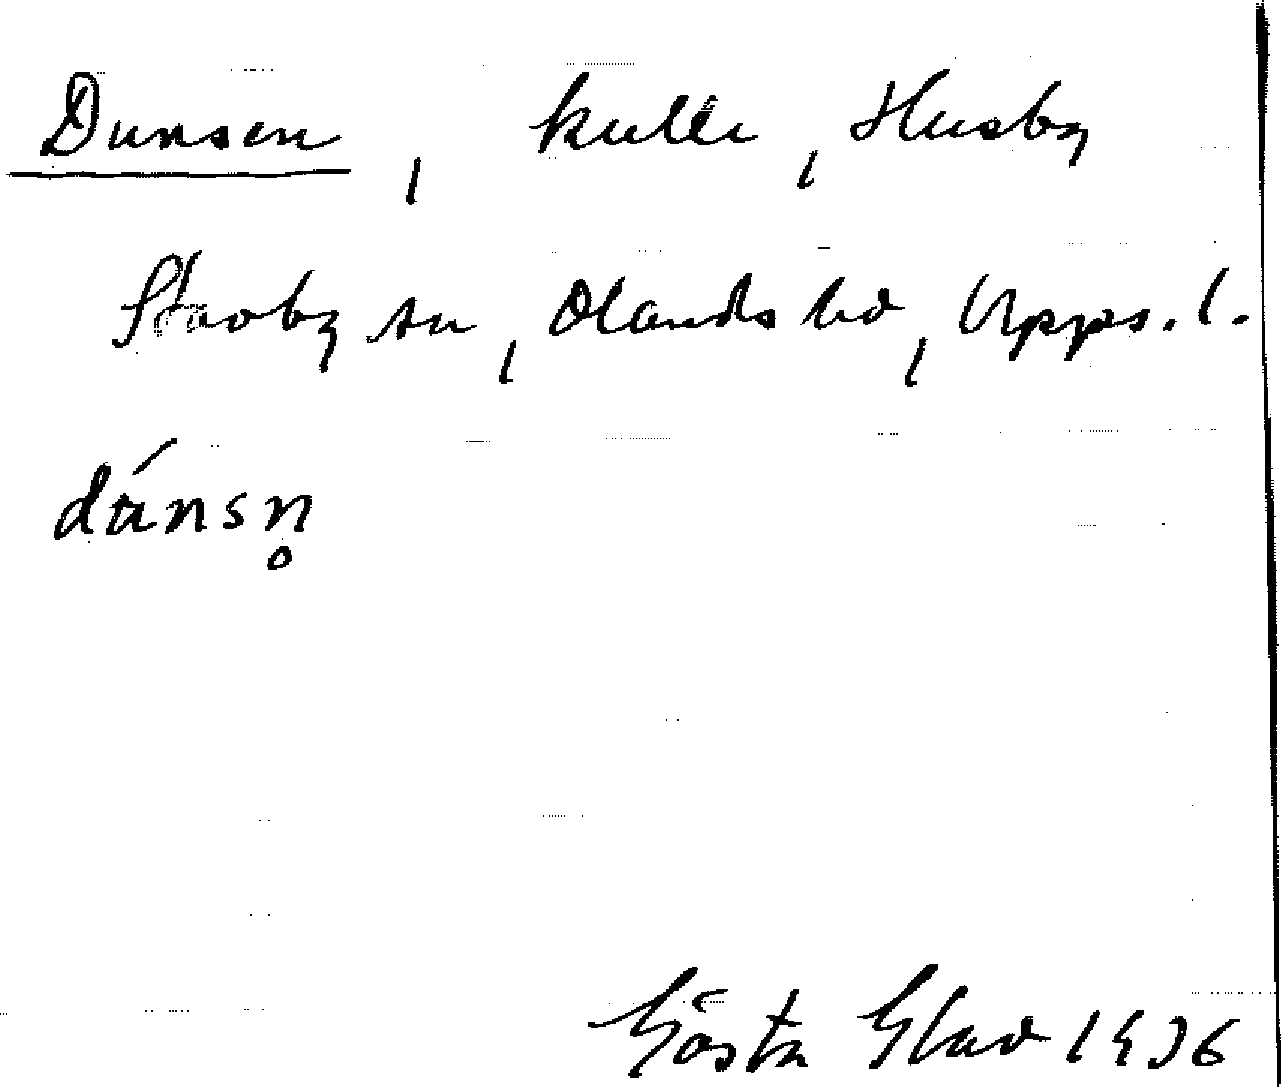 Dunsen, kulle, Husby
Stavby sn, Olands hd, Upps. l.
dánsn̥
Gösta Glad 1936